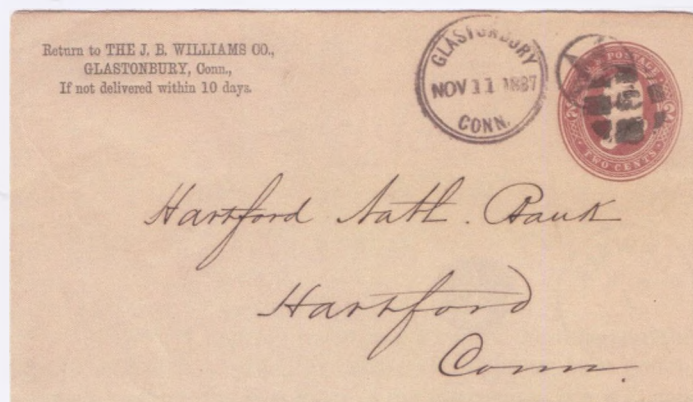 Return to THE J. B. WILLIAMS CO.,
GLASTONBURY, Conn.,
If not delivered within 10 days.
GLASTONBURY
NOV 11 1887
CONN.
POSTAGE
TWO CENTS
Hartford Natl. Bank
Hartford
Conn.